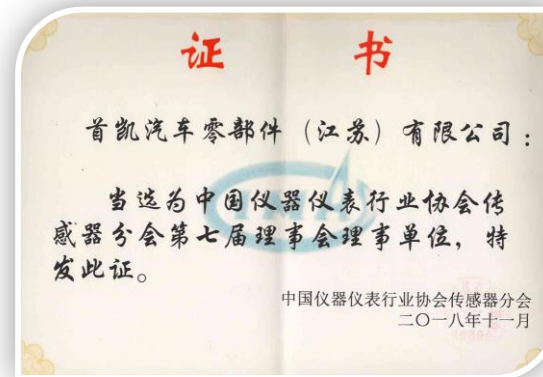 证 书
首凯汽车零部件（江苏）有限公司：
当选为中国仪器仪表行业协会传
感器分会第七届理事会理事单位，特
发此证。
中国仪器仪表行业协会传感器分会
二〇一八年十一月